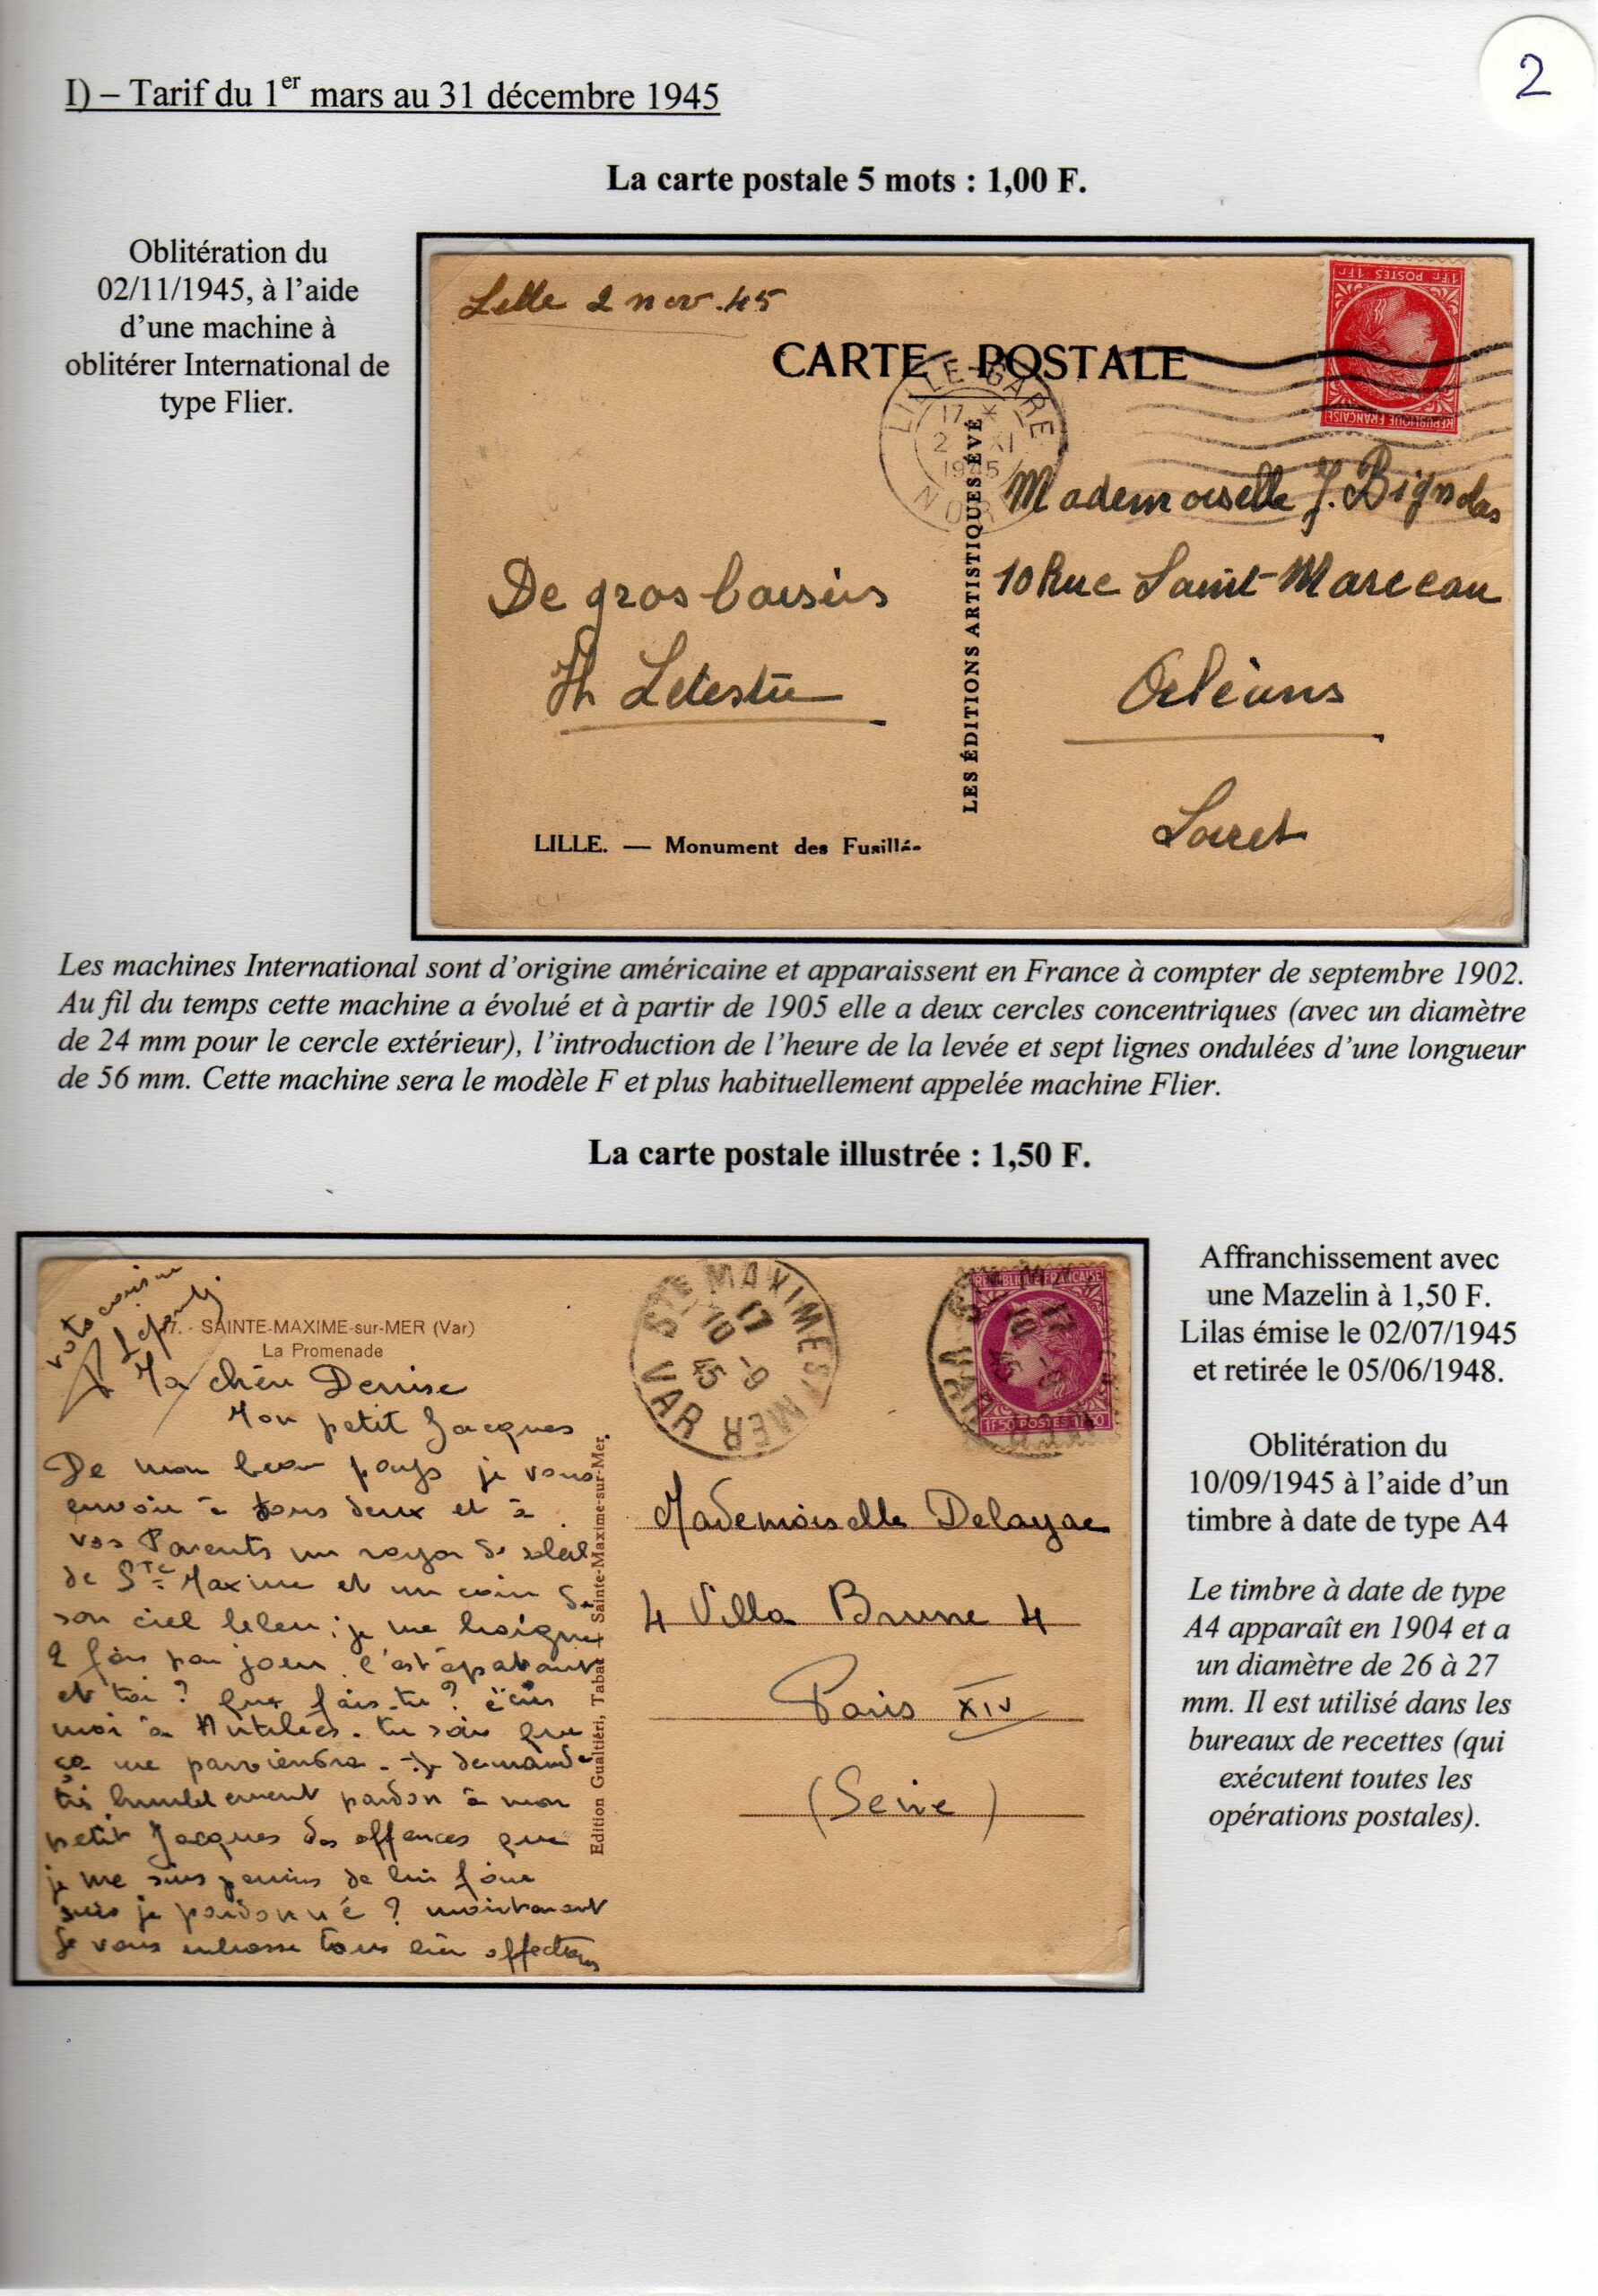 2
I) – Tarif du 1er mars au 31 décembre 1945
La carte postale 5 mots : 1,00 F.
Oblitération du
02/11/1945, à l’aide
d’une machine à
oblitérer International de
type Flier.
Lille 2 nov. 45
1Fr POSTES 1Fr
REPUBLIQUE FRANÇAISE
CARTE POSTALE
LILLE-GARE
17 *
2 XI
1945
NORD
LES ÉDITIONS ARTISTIQUES ÈVÉ
Mademoiselle J.
10 Rue Saint-Marceau
Orléans
Loiret
De gros baisers
Th Letestu
LILLE. — Monument des Fusillés
Les machines International sont d’origine américaine et apparaissent en France à compter de septembre 1902.
Au fil du temps cette machine a évolué et à partir de 1905 elle a deux cercles concentriques (avec un diamètre
de 24 mm pour le cercle extérieur), l’introduction de l’heure de la levée et sept lignes ondulées d’une longueur
de 56 mm. Cette machine sera le modèle F et plus habituellement appelée machine Flier.
La carte postale illustrée : 1,50 F.
7. - SAINTE-MAXIME-sur-MER (Var)
La Promenade
Ma chère Denise
Mon petit Jacques
De mon beau pays je vous
envoie à tous deux et à
vos Parents un rayon de soleil
de Ste Maxime et un coin de
son ciel bleu ; je me baigne
2 fois par jour. c'est épatant
et toi ? que fais-tu ? écris
moi à Antibes. tu sais que
ça me parviendra. je demande
très humblement pardon à mon
petit Jacques des offences que
je me suis permis de lui faire
suis je pardonné ? maintenant
Je vous embrasse tous bien
Edition Gualtiéri, Tabac Sainte-Maxime-sur-Mer.
STE MAXIME S/ MER
17
10 -9
45
VAR
REPUBLIQUE FRANÇAISE
1F50 POSTES 1F50
17
10 -9
45
VAR
Mademoiselle Delayae
4 Villa Brune 4
Paris XIV
(Seine)
Affranchissement avec
une Mazelin à 1,50 F.
Lilas émise le 02/07/1945
et retirée le 05/06/1948.
Oblitération du
10/09/1945 à l’aide d’un
timbre à date de type A4
Le timbre à date de type
A4 apparaît en 1904 et a
un diamètre de 26 à 27
mm. Il est utilisé dans les
bureaux de recettes (qui
exécutent toutes les
opérations postales).